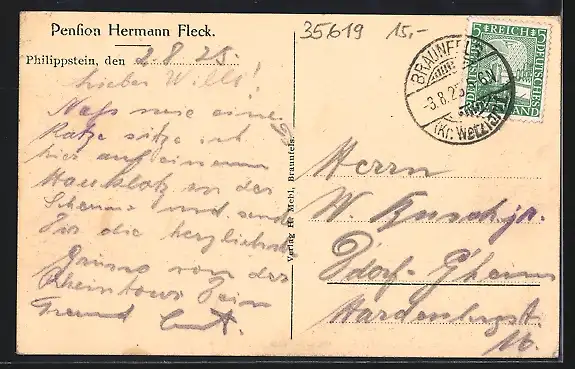 Pension Hermann Fleck.
35619 15,-
Philippstein, den 2.8.25.
Lieber Willi!
Nass wie eine
Katze sitze ich
hier auf einem
Hauklotz in der
Scheune und sende
Dir die herzlichsten
Grüsse von der
Rheintour Dein
Freund
Verlag H. Mehl, Braunfels.
BRAUNFELS
-3.8.25
(Kr. Wetzlar)
5 REICH 5
DEUTSCHES
Herrn
W. jr.
Ddorf-
Hardenbergst.
16.